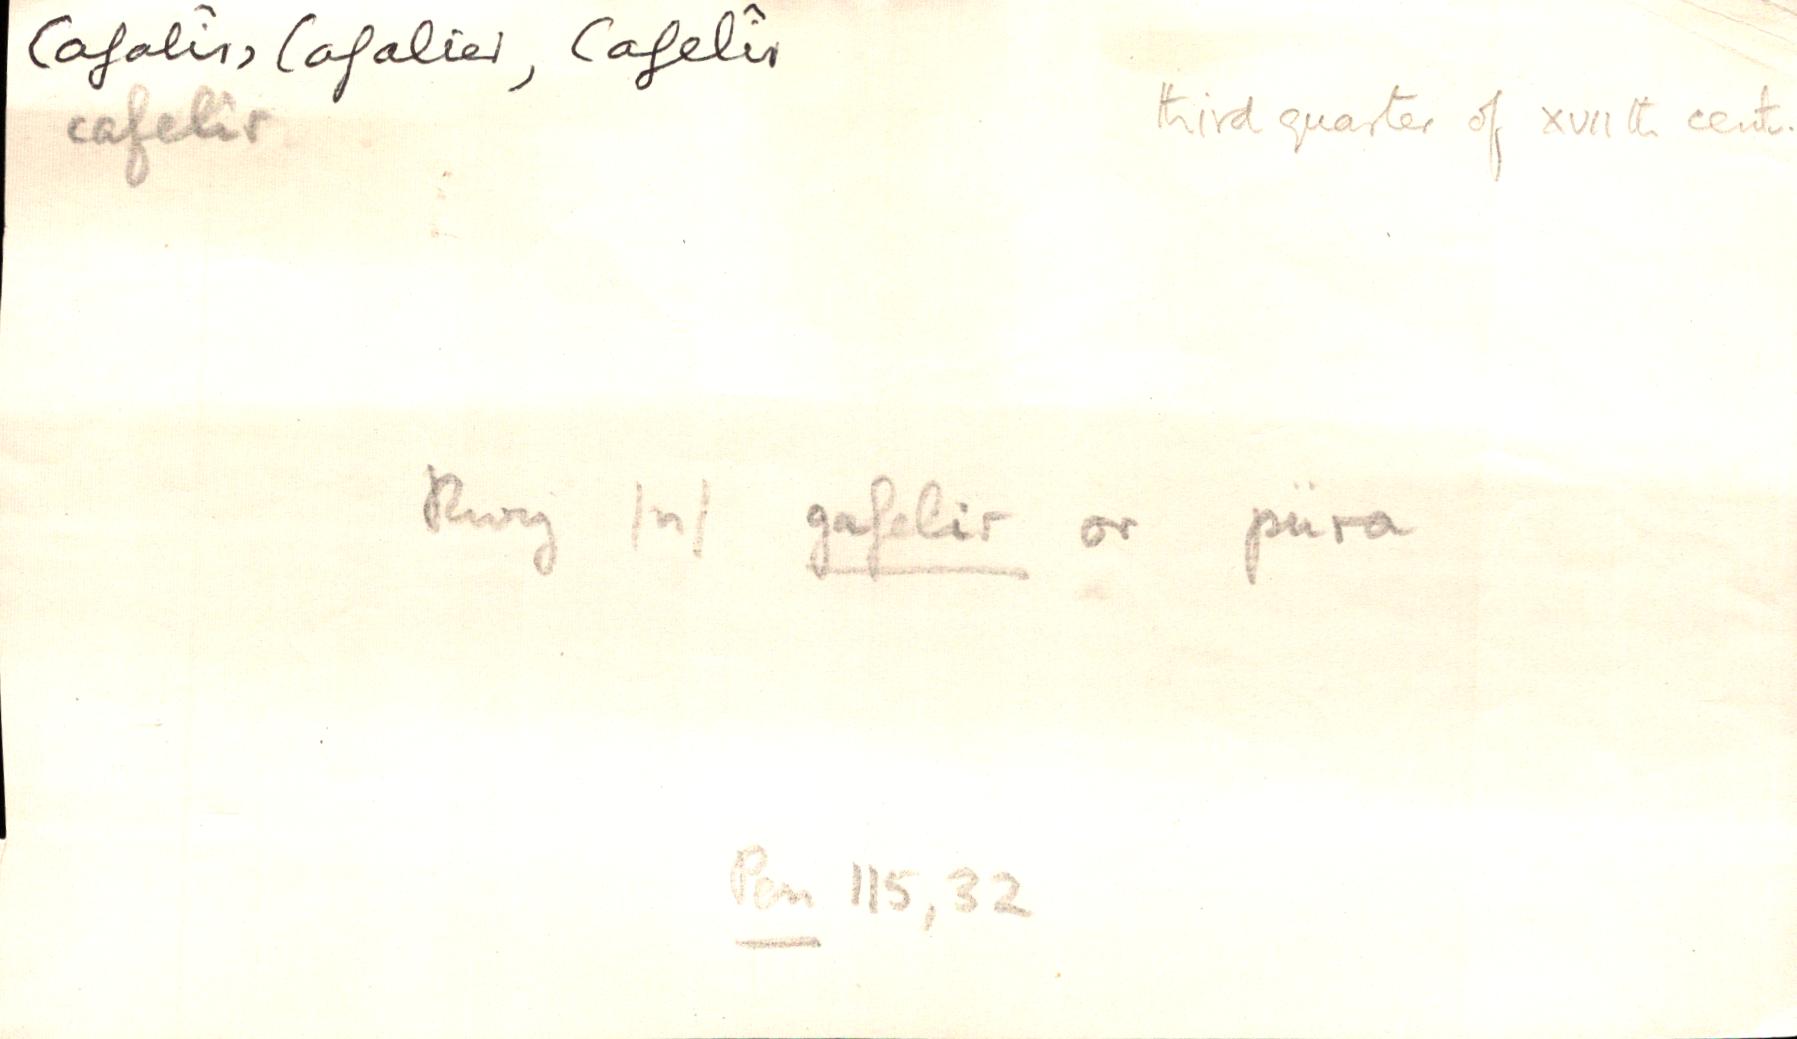 Cafalîr, Cafalier, Cafelîr
cafelîr
third quarter of XVIIth cent.
Rwy /n/ gafelir or püra
Pen 115, 32